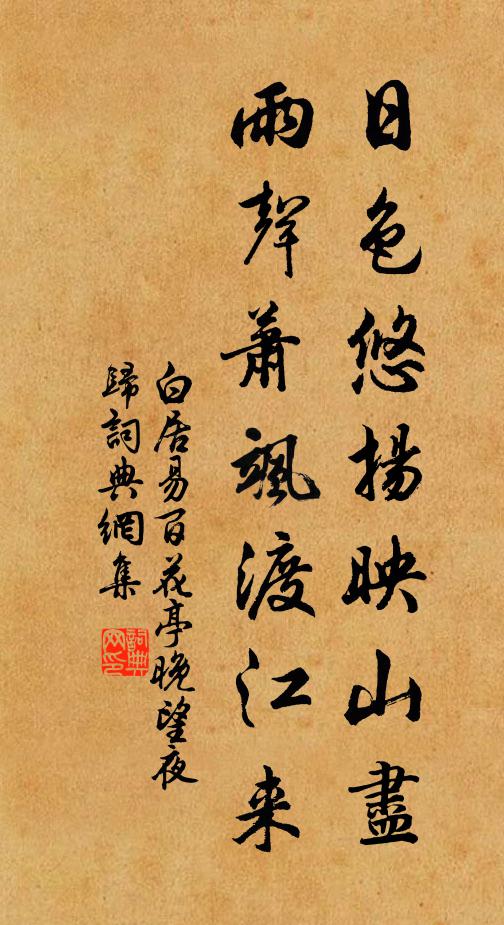 日色悠揚映山盡
雨聲蕭颯渡江来
白居易百花亭晚望夜
歸詞典網集
詞典网印